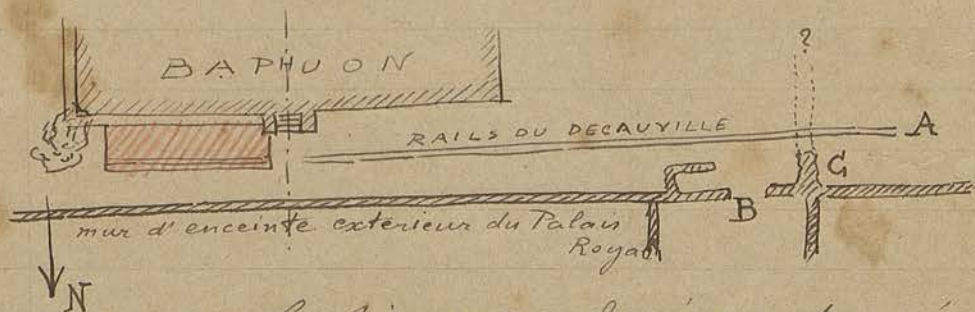 ?
BAPHUON
RAILS DU DECAUVILLE
A
C
B
mur d'enceinte exterieur du Palais
Royal
N